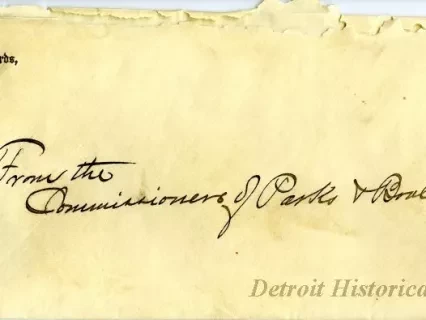 rds,
From the
Commissioners of Parks & Boul
Detroit Historica